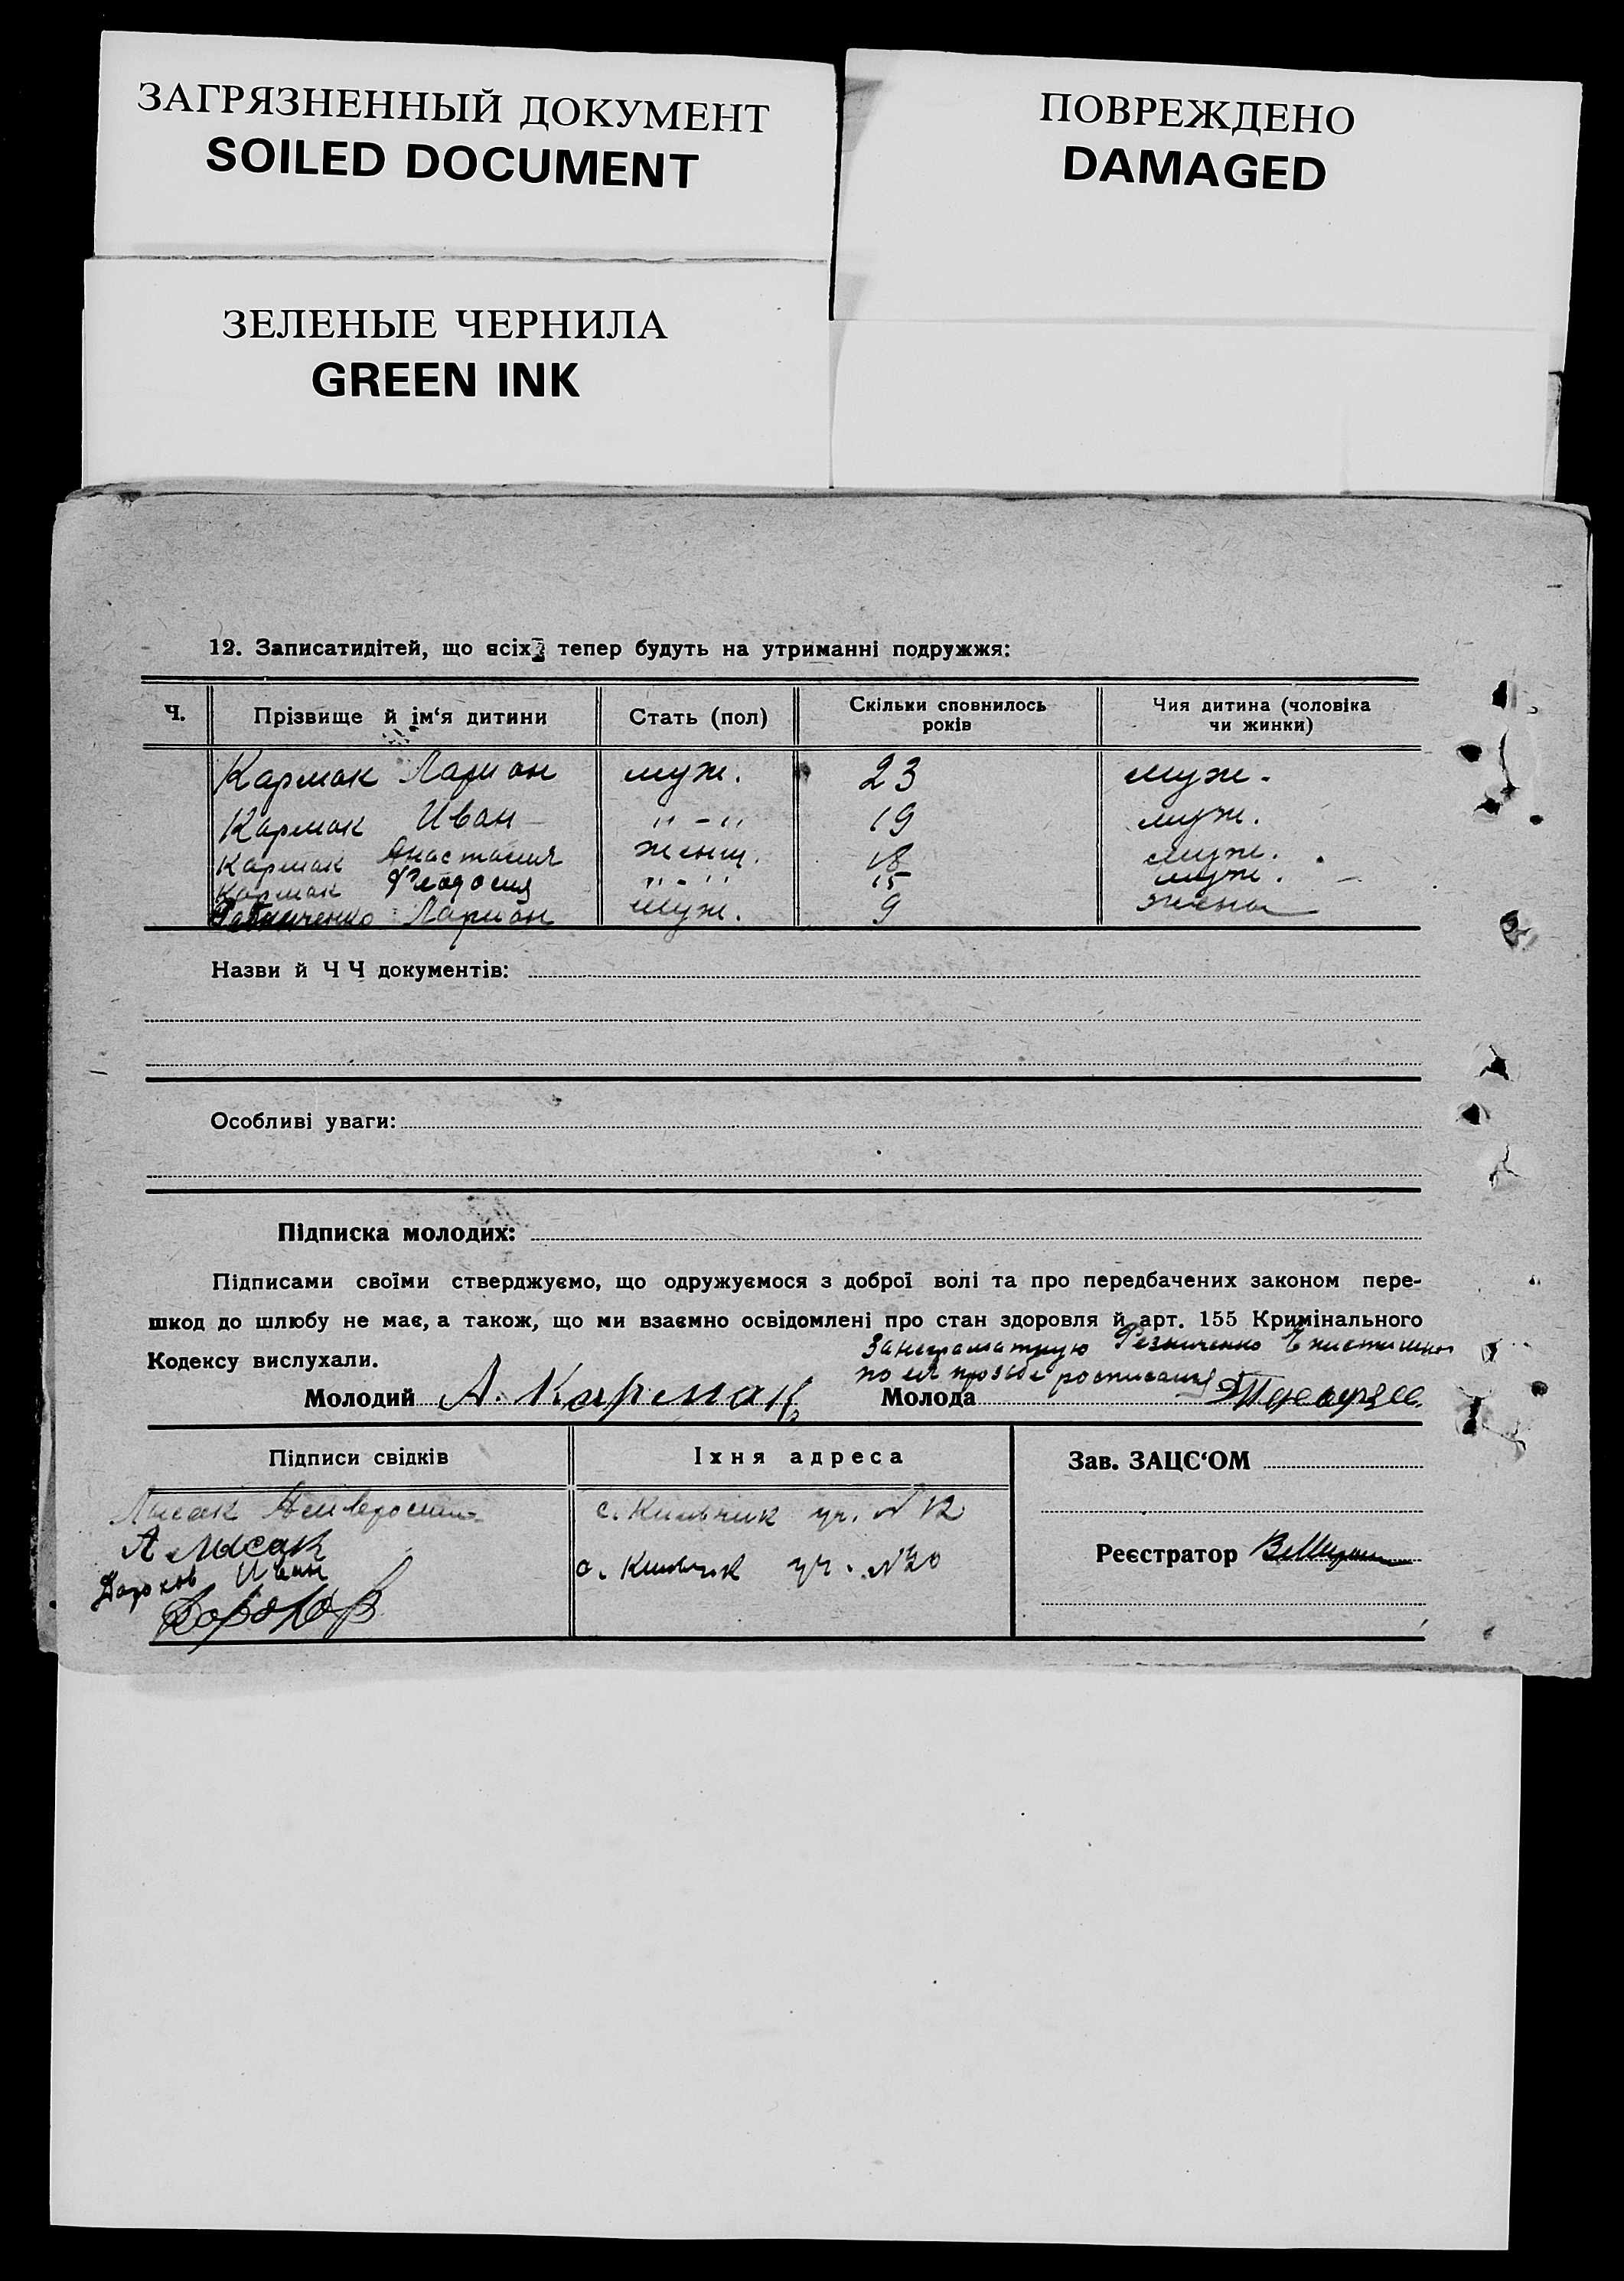 ЗАГРЯЗНЕННЫЙ ДОКУМЕНТ
SOILED DOCUMENT
ПОВРЕЖДЕНО
DAMAGED
ЗЕЛЕНЫЕ ЧЕРНИЛА
GREEN INK
12. Записатидітей, що всіх тепер будуть на утриманні подружжя:
Ч. Прізвище й ім‘я дитини Стать (пол) Скільки сповнилось років Чия дитина (чоловіка чи жинки)
Кармак Ларион муж. 23 муж.
Кармак Иван " - " 19 муж.
Кармак Анастасия женщ. 18 муж.
Кармак Феодосия " - " 15 муж.
Ларион муж. 9 жены
Назви й Ч Ч документів:
Особливі уваги:
Підписка молодих:
Підписами своїми стверджуємо, що одружуємося з доброї волі та про передбачених законом пере-
шкод до шлюбу не має, а також, що ми взаємно освідомлені про стан здоровля й арт. 155 Кримінального
Кодексу вислухали.
За неграматную Резниченко
по её прозьбе росписался
Молодий А. Кармак Молода
Підписи свідків Їхня адреса Зав. ЗАЦС‘ОМ
Лысак с. уч. N 12
А Лысак
Реєстратор
Дорохов Иван с. уч. N 20
Дорохов